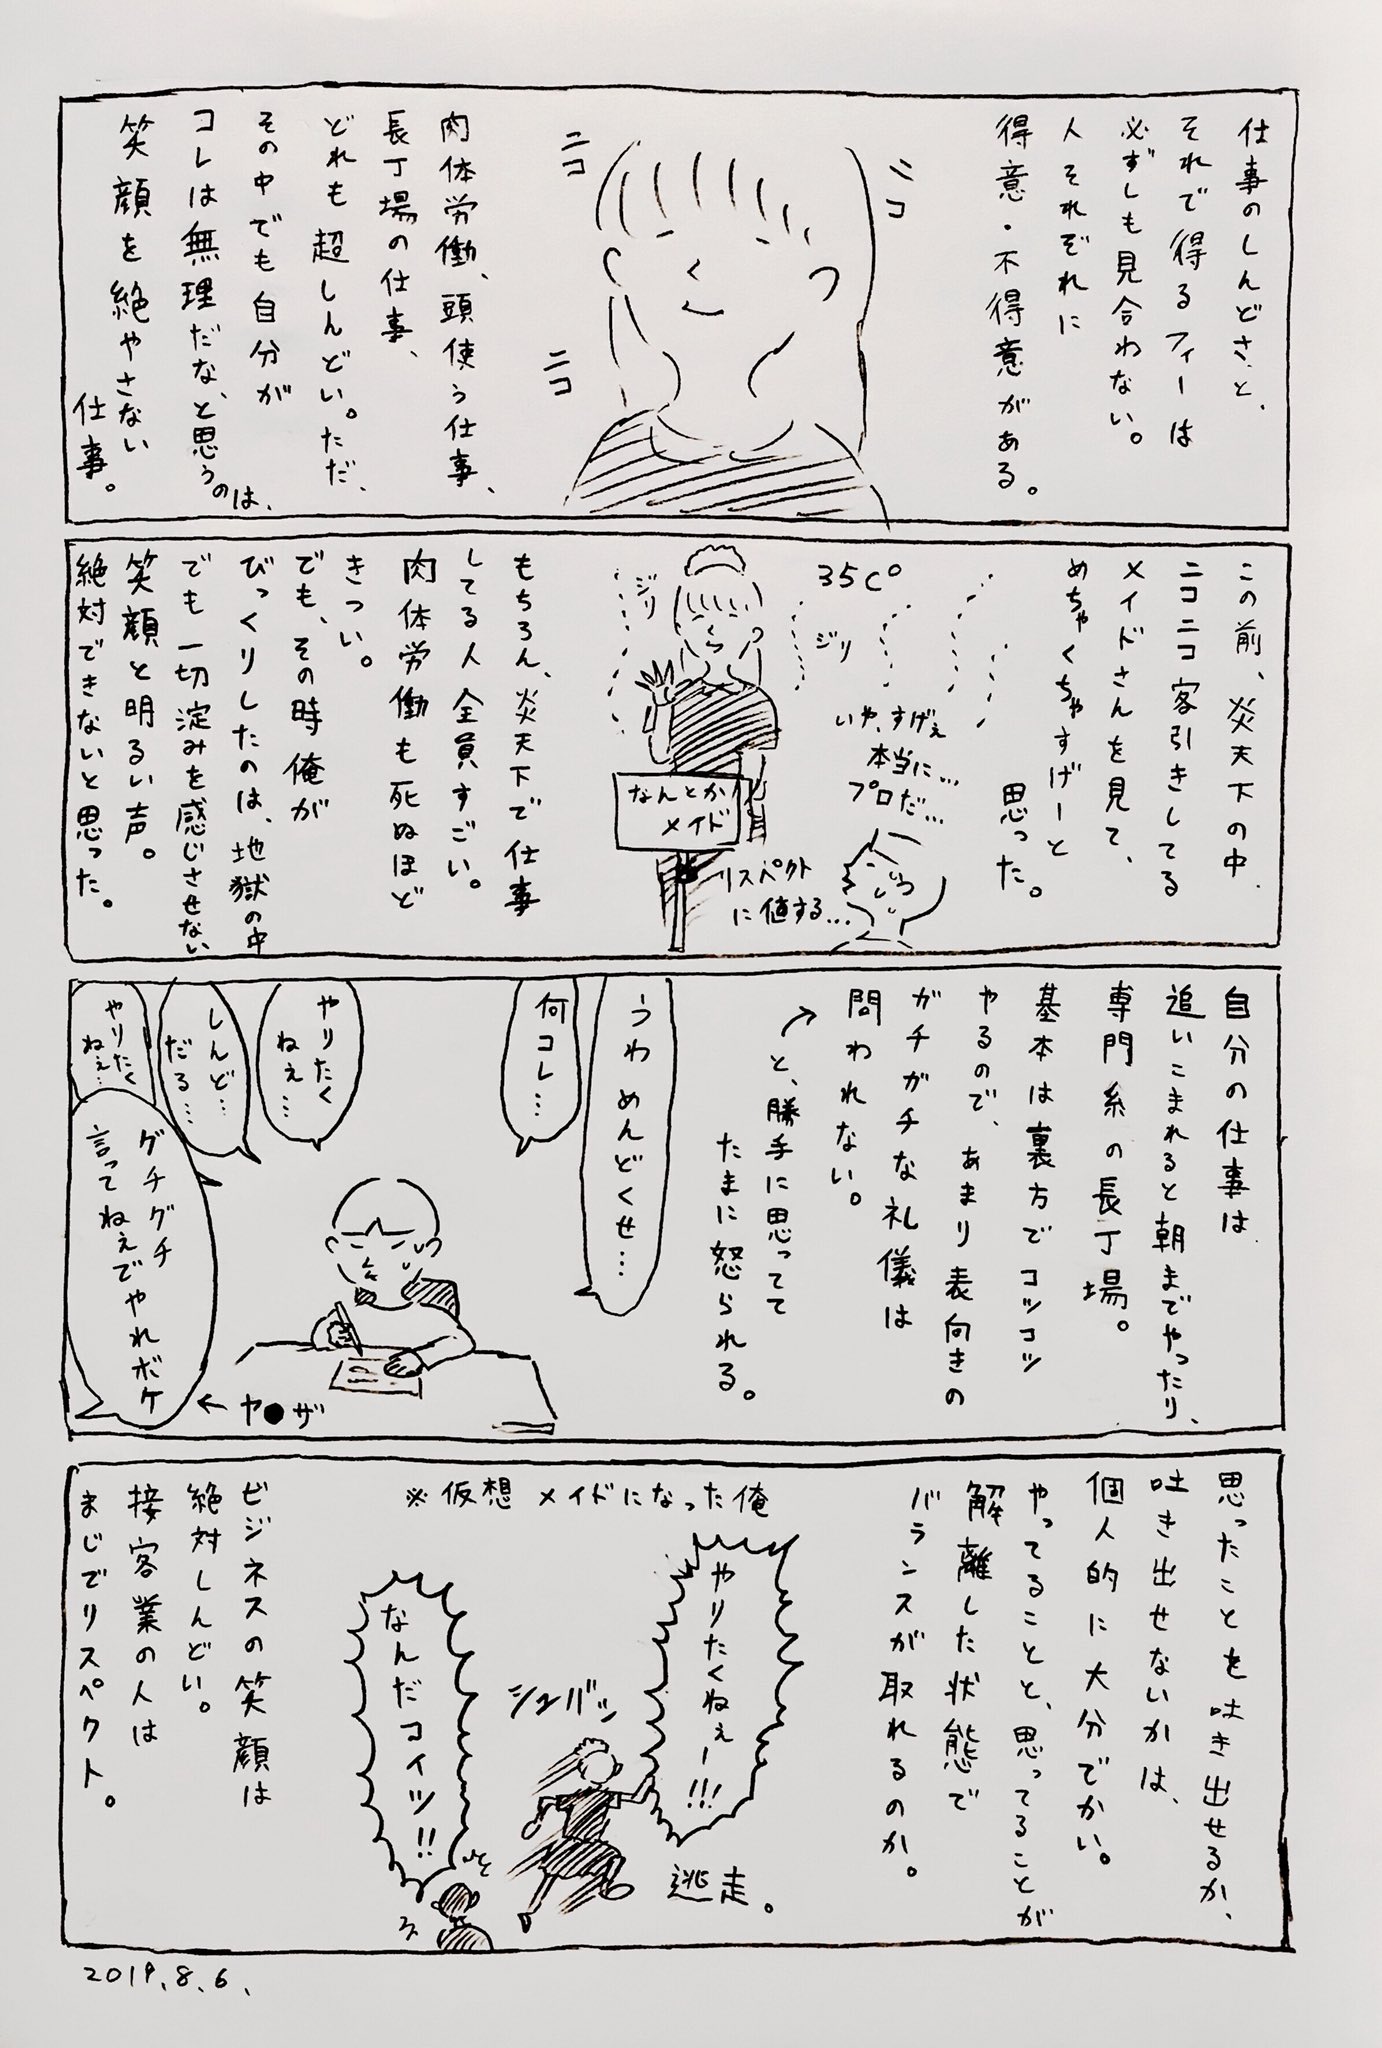 仕事のしんどさと、
それで得るフィーは
必ずしも見合わない。
人それぞれに
得意・不得意がある。
ニコ
ニコ
ニコ
肉体労働、頭使う仕事、
長丁場の仕事、
どれも超しんどい。ただ、
その中でも自分が
コレは無理だな、と思うのは、
笑顔を絶やさない
仕事。
この前、炎天下の中
ニコニコ客引きしてる
メイドさんを見て、
めちゃくちゃすげーと
思った。
35C°
ジリ
ジリ
いや、すげぇ
本当に…
プロだ…
なんとか
メイド
リスペクト
に値する…
もちろん、炎天下で仕事
してる人全員すごい。
肉体労働も死ぬほど
きつい。
でも、その時俺が
びっくりしたのは、地獄の中
でも一切淀みを感じさせない
笑顔と明るい声。
絶対できないと思った。
自分の仕事は
追いこまれると朝までやったり、
専門系の長丁場。
基本は裏方でコツコツ
やるので、あまり表向きの
ガチガチな礼儀は
問われない。
↗と、勝手に思ってて
たまに怒られる。
うわ めんどくせ…
何コレ…
やりたく
ねえ…
しんど…
だる…
やりたく
ねぇ…
グチグチ
言ってねぇでやれボケ
←ヤ●ザ
思ったことを吐き出せるか、
吐き出せないかは、
個人的に大分でかい。
やってることと、思ってることが
解離した状態で
バランスが取れるのか。
※仮想 メイドになった俺
やりたくねぇー!!!
シュバッ
逃走。
なんだコイツ!!
ビジネスの笑顔は
絶対しんどい。
接客業の人は
まじでリスペクト。
2019.8.6.